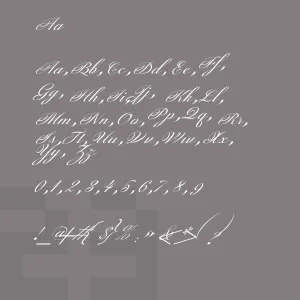 Aa
Aa, Bb, Cc, Dd, Ee, Ff,
Gg, Hh, Ii, Jj, Kk, Ll,
Mm, Nn, Oo, Pp, Qq, Rr,
Ss, Tt, Uu, Vv, Ww, Xx,
Yy, Zz
0,1,2,3,4,5,6,7,8,9